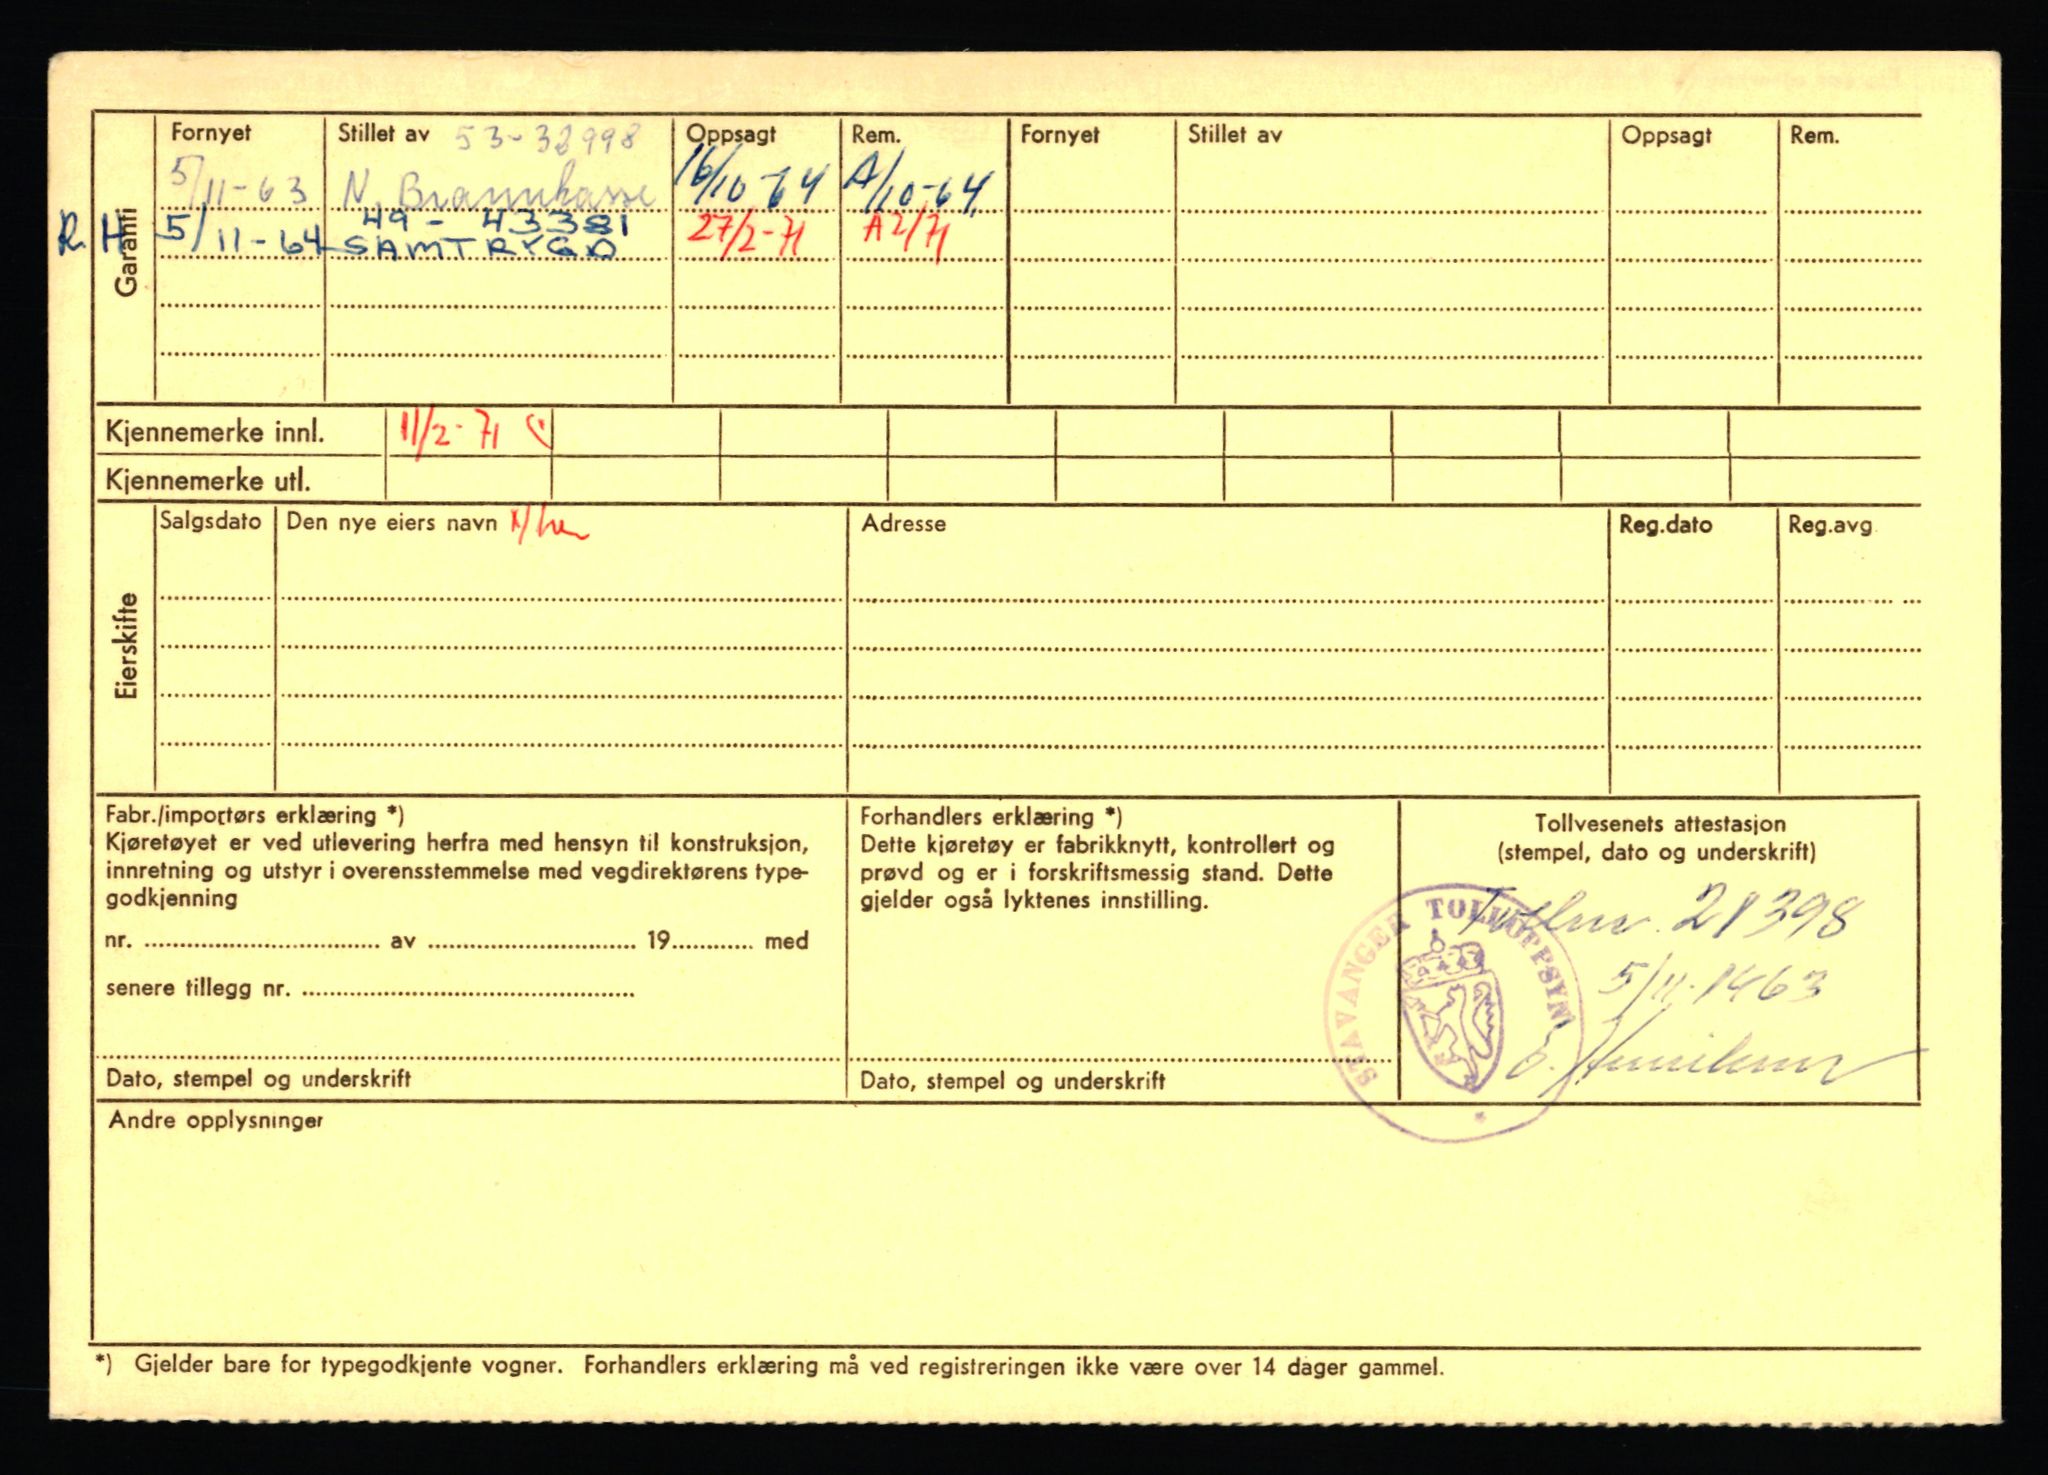 Garanti
Fornyet Stillet av 53-38998 Oppsagt Rem. Fornyet Stillet av Oppsagt Rem.
5/11-63 N. Brannkasse 16/10-64 A/10-64
49 - 43381
R.H 5/11-64 SAMTRYGD 27/2-71 A2/71
Kjennemerke innl. 11/2-71
Kjennemerke utl.
Eierskifte
Salgsdato Den nye eiers navn Adresse Reg.dato Reg.avg
Fabr./importørs erklæring *)
Kjøretøyet er ved utlevering herfra med hensyn til konstruksjon,
innretning og utstyr i overensstemmelse med vegdirektørens type-
godkjenning
nr. ........ av ........ 19........ med
senere tillegg nr. ........
Dato, stempel og underskrift
Forhandlers erklæring *)
Dette kjøretøy er fabrikknytt, kontrollert og
prøvd og er i forskriftsmessig stand. Dette
gjelder også lyktenes innstilling.
Dato, stempel og underskrift
Tollvesenets attestasjon
(stempel, dato og underskrift)
Tollnr. 21398
5/11-1963
STAVANGER TOLLOPPSYN
Andre opplysninger
*) Gjelder bare for typegodkjente vogner. Forhandlers erklæring må ved registreringen ikke være over 14 dager gammel.